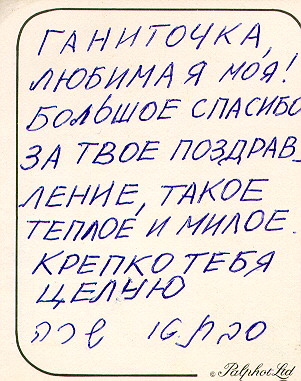 ГАНИТОЧКА,
ЛЮБИМАЯ МОЯ!
БОЛЬШОЕ СПАСИБО
ЗА ТВОЕ ПОЗДРАВ_
ЛЕНИЕ, ТАКОЕ
ТЕПЛОЕ И МИЛОЕ.
КРЕПКО ТЕБЯ
ЦЕЛУЮ
סבתא שרה
© Palphot Ltd